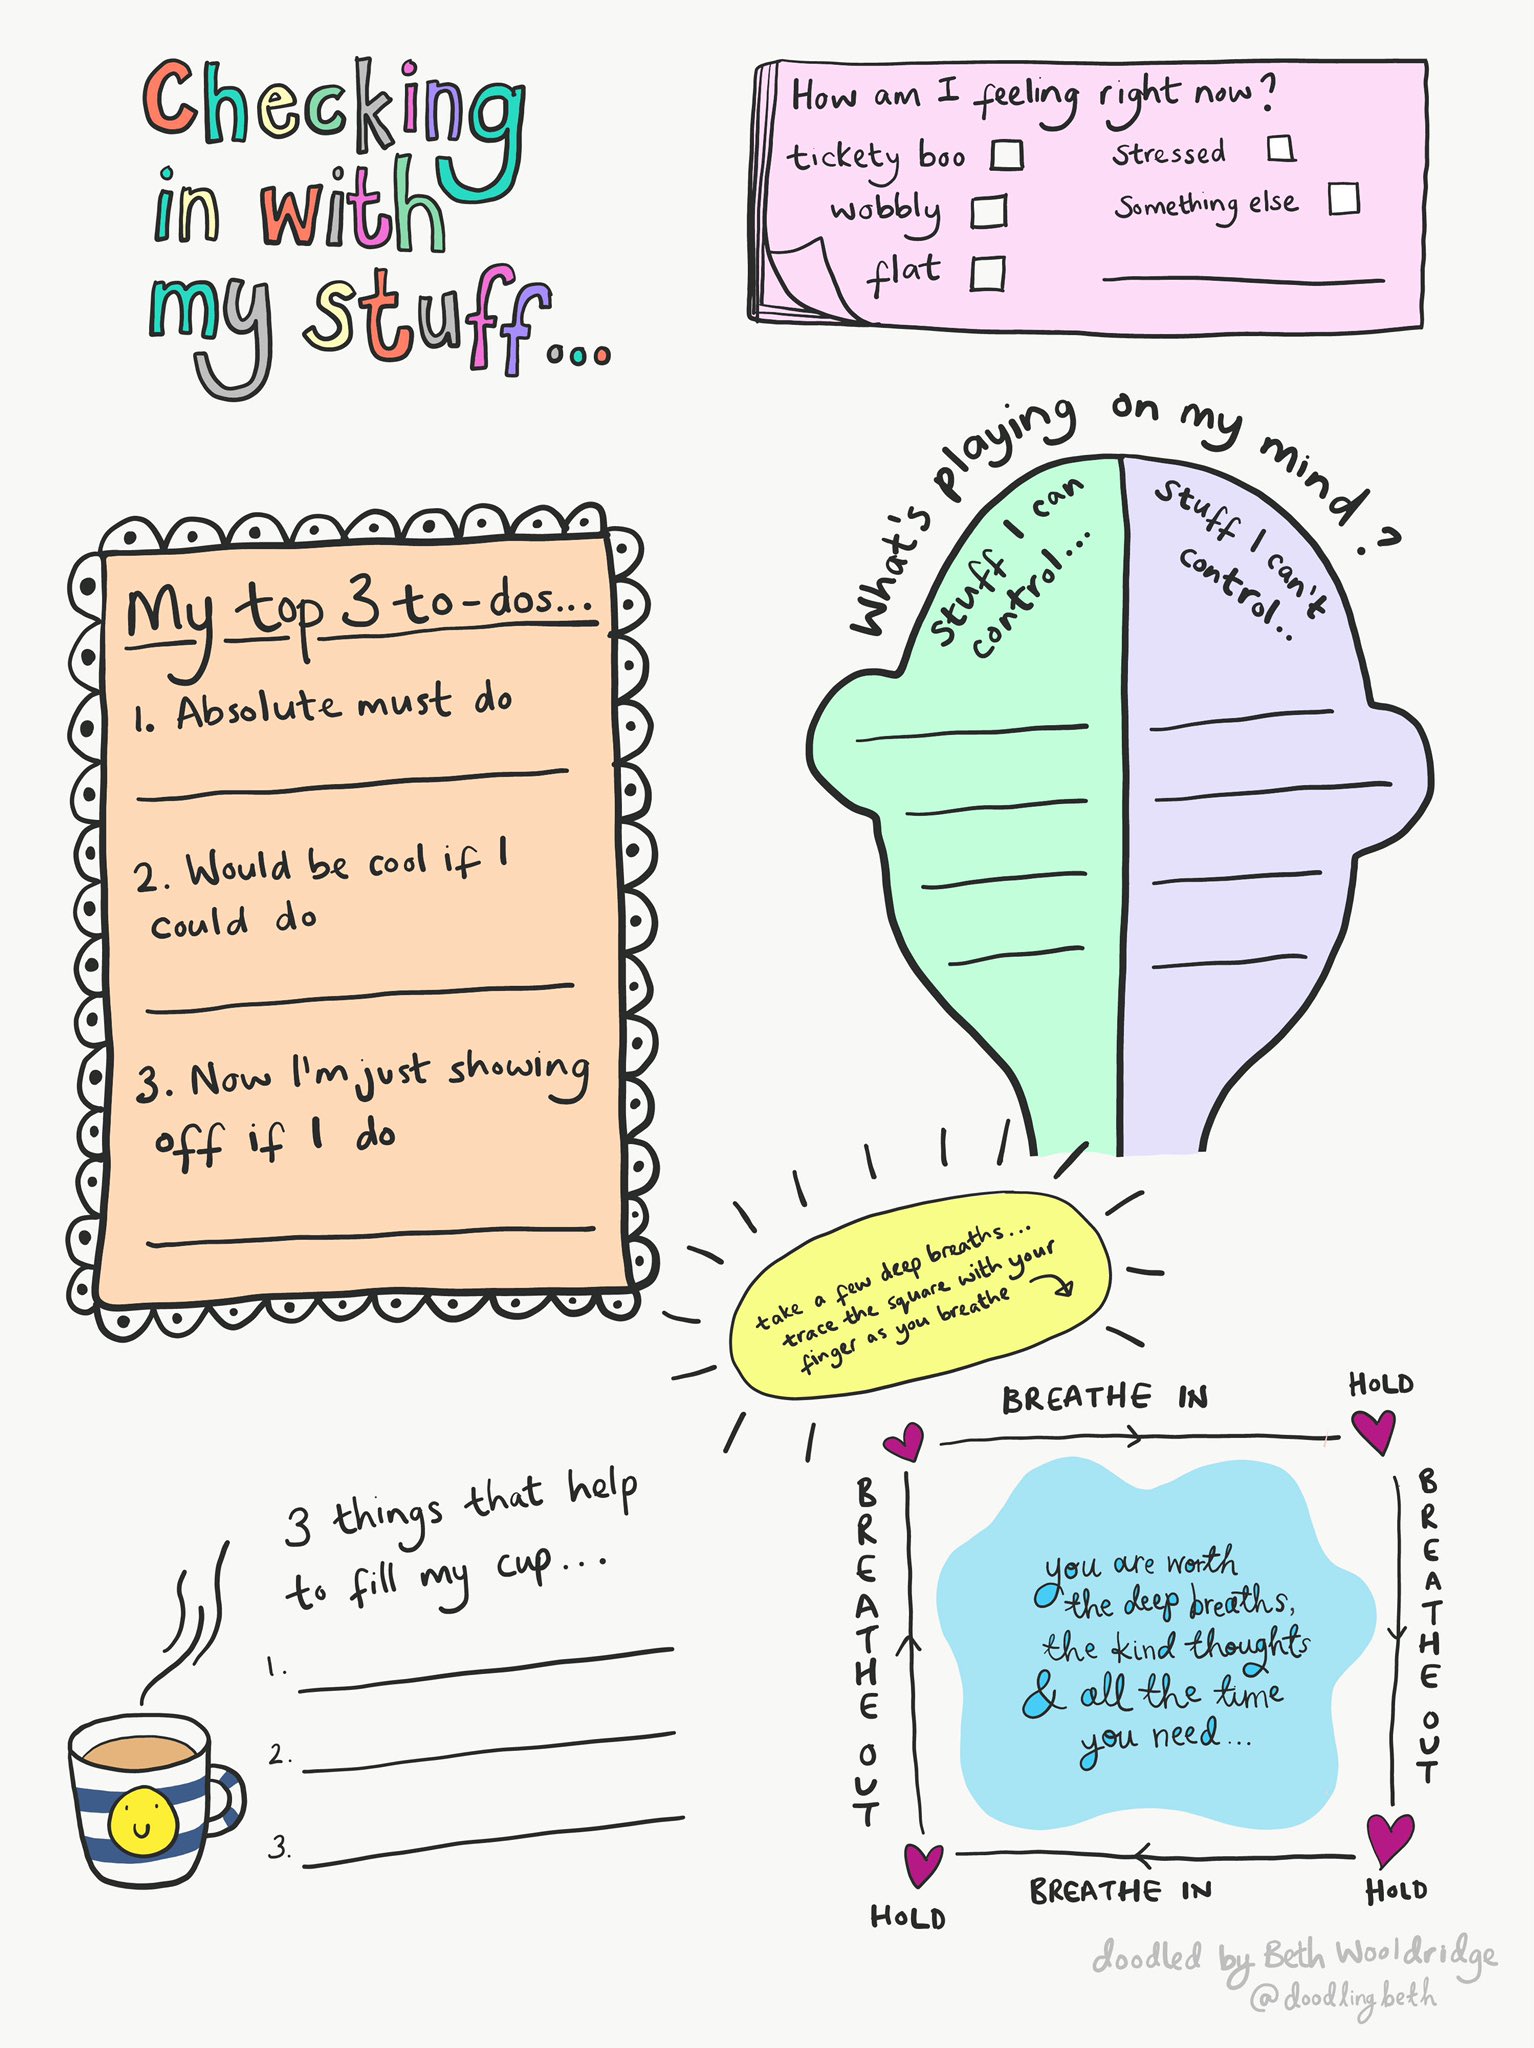 Checking
in with
my stuff...
How am I feeling right now?
tickety boo
wobbly
flat
Stressed
Something else
What's playing on my mind?
Stuff I can
control...
Stuff I can't
control..
My top 3 to-dos...
1. Absolute must do
2. Would be cool if I
could do
3. Now I'm just showing
off if I do
take a few deep breaths...
trace the square with your
finger as you breathe
3 things that help
to fill my cup...
1.
2.
3.
BREATHE IN
HOLD
BREATHE OUT
HOLD
BREATHE IN
HOLD
BREATHE OUT
you are worth
the deep breaths,
the kind thoughts
& all the time
you need...
doodled by Beth Wooldridge
@doodlingbeth